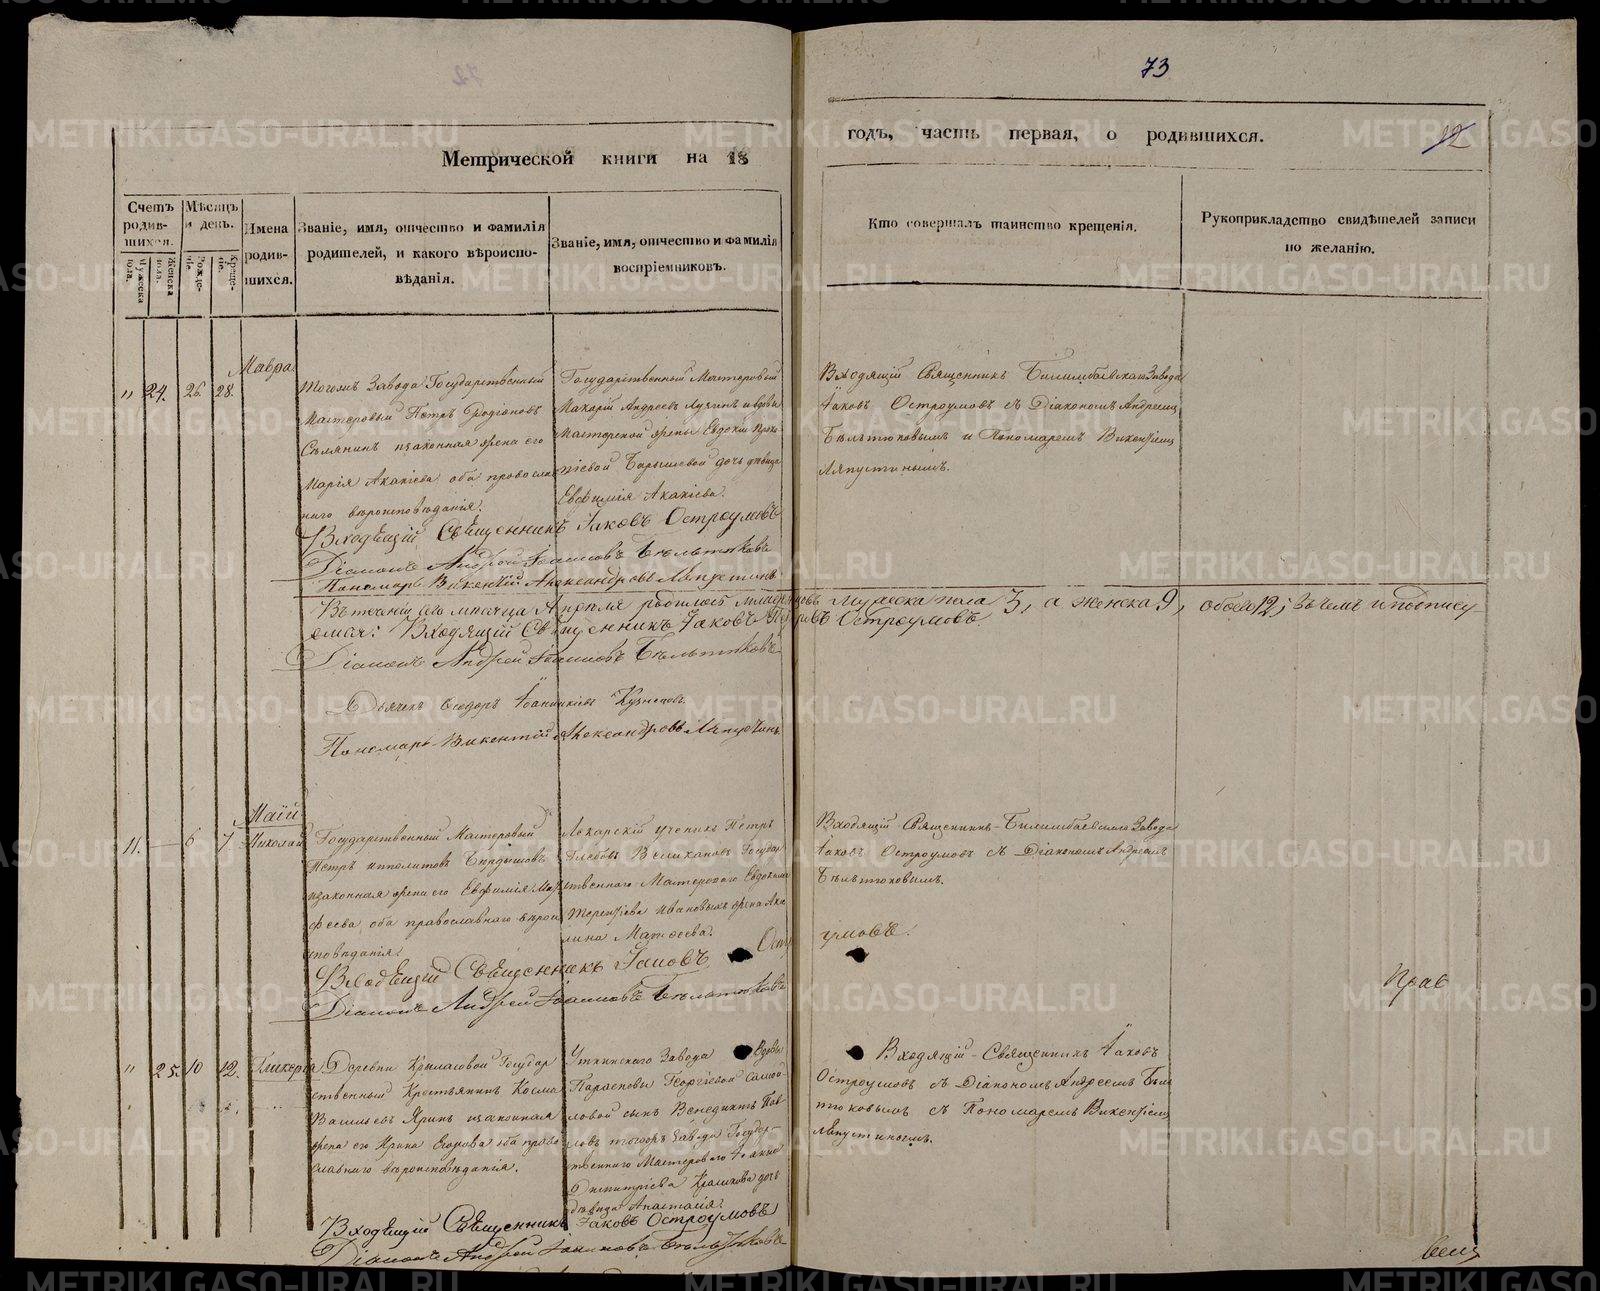 73
12
Метрической книги на 18
годъ, часть первая, о родившихся.
Счетъ родив-шихся.
Мужеска пола.
Женска пола.
Мѣсяцъ и день.
Рожде-нiе.
Креще-нiе.
Имена родив-шихся.
Званiе, имя, отчество и фамилiя
родителей, и какого вѣроиспо-
вѣданiя.
Званiе, имя, отчество и фамилiя
воспрiемниковъ.
Кто совершалъ таинство крещенiя.
Рукоприкладство свидѣтелей записи
по желанiю.
" 24. 26. 28. Мавра
тогожъ Завода Государственный
Мастеровый Петръ Родiоновъ
Селянинъ изаконная жена его
Марiя Акакiева оба православ
наго вѣроисповѣданiя.
Государственный Мастеровой
Макарiй Андреевъ Лузинъ и вдовы
Мастерской жены Евдокiи Проко
пiевой Барышевой дочь дѣвица
Евфимiя Акакiева.
Входящiй Священникъ Билимбаевскаго Завода
Iаковъ Остроумовъ съ Дiакономъ Андреемъ
Бѣльтюковымъ и Пономаремъ Викентiемъ
Ляпустинымъ.
Входящiй Священникъ Iаковъ Остроумовъ
Дiаконъ Андрей Iоанновъ Бѣльтюковъ
Пономарь Викентiй Александровъ Ляпустинъ
Въ теченiи сего мѣсяца Апрѣля родилось младенцовъ Мужеска пола 3, а женска 9, обоего 12; въ чемъ и подпису
емся: Входящiй Священникъ Iаковъ Петровъ Остроумовъ
Дiаконъ Андрей Iоанновъ Бѣльтюковъ
Дьячекъ Феодоръ Кузнецовъ
Пономарь Викентiй Александровъ Ляпустинъ
Маiй
11. — 6 7 Николай
Государственный Мастеровый
Петръ Ипполитовъ Бердышовъ
изаконная жена его Евфимiя Мар
феева оба православнаго вѣрои
сповѣданiя
Лекарскiй ученикъ Петръ
Глебовъ Великановъ Государ
ственнаго Мастероваго Евдокима
Терентiева Ивановыхъ жена Аку
лина Матѳеева.
Входящiй Священникъ Билимбаевскаго Завода
Iаковъ Остроумовъ съ Дiакономъ Андреемъ
Бѣльтюковымъ.
Входящiй Священникъ Iаковъ Остр
умовъ.
Дiаконъ Андрей Iоанновъ Бѣльтюковъ
Прав
" 25. 10 12. Гликерiя
Деревни Крыласовой Государ
ственный Крестьянинъ Косма
Васильевъ Яринъ изаконная
жена его Ирина Егорова оба право
славнаго вѣроисповѣданiя.
Уткинскаго Завода Вдовы
Парасковьи Георгiевой Самой
ловой сынъ Венедиктъ Пав
ловъ тогожъ Завода Государ-
ственнаго Мастероваго Iоакима
Димитрiева дочь
дѣвица Анастасiя.
Входящiй Священникъ Iаковъ
Остроумовъ съ Дiакономъ Андреемъ Бѣль
тюковымъ съ Пономаремъ Викентiемъ
Ляпустинымъ.
Входящiй Священникъ Iаковъ Остроумовъ
Дiаконъ Андрей Iоанновъ Бѣльтюковъ
METRIKI.GASO-URAL.RU